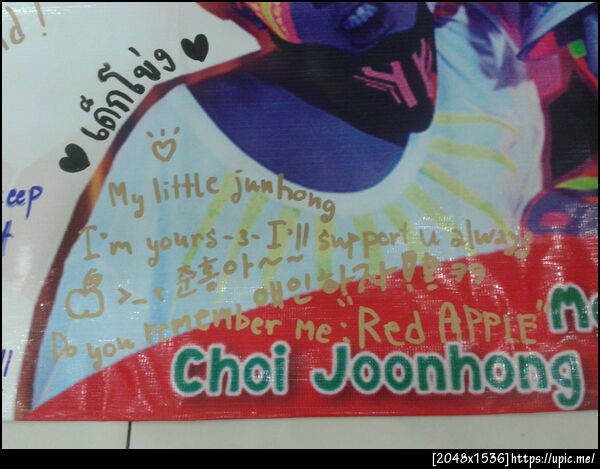 d!
♥ เด็กโข่ง ♥
My little junhong
eep
I'm yours -3- I'll support u always
>_< 준홍아~~
애인하자!! ㅋㅋ
Do you remember me "Red APPLE"
ll
Choi Joonhong
[2048x1536]https://upic.me/